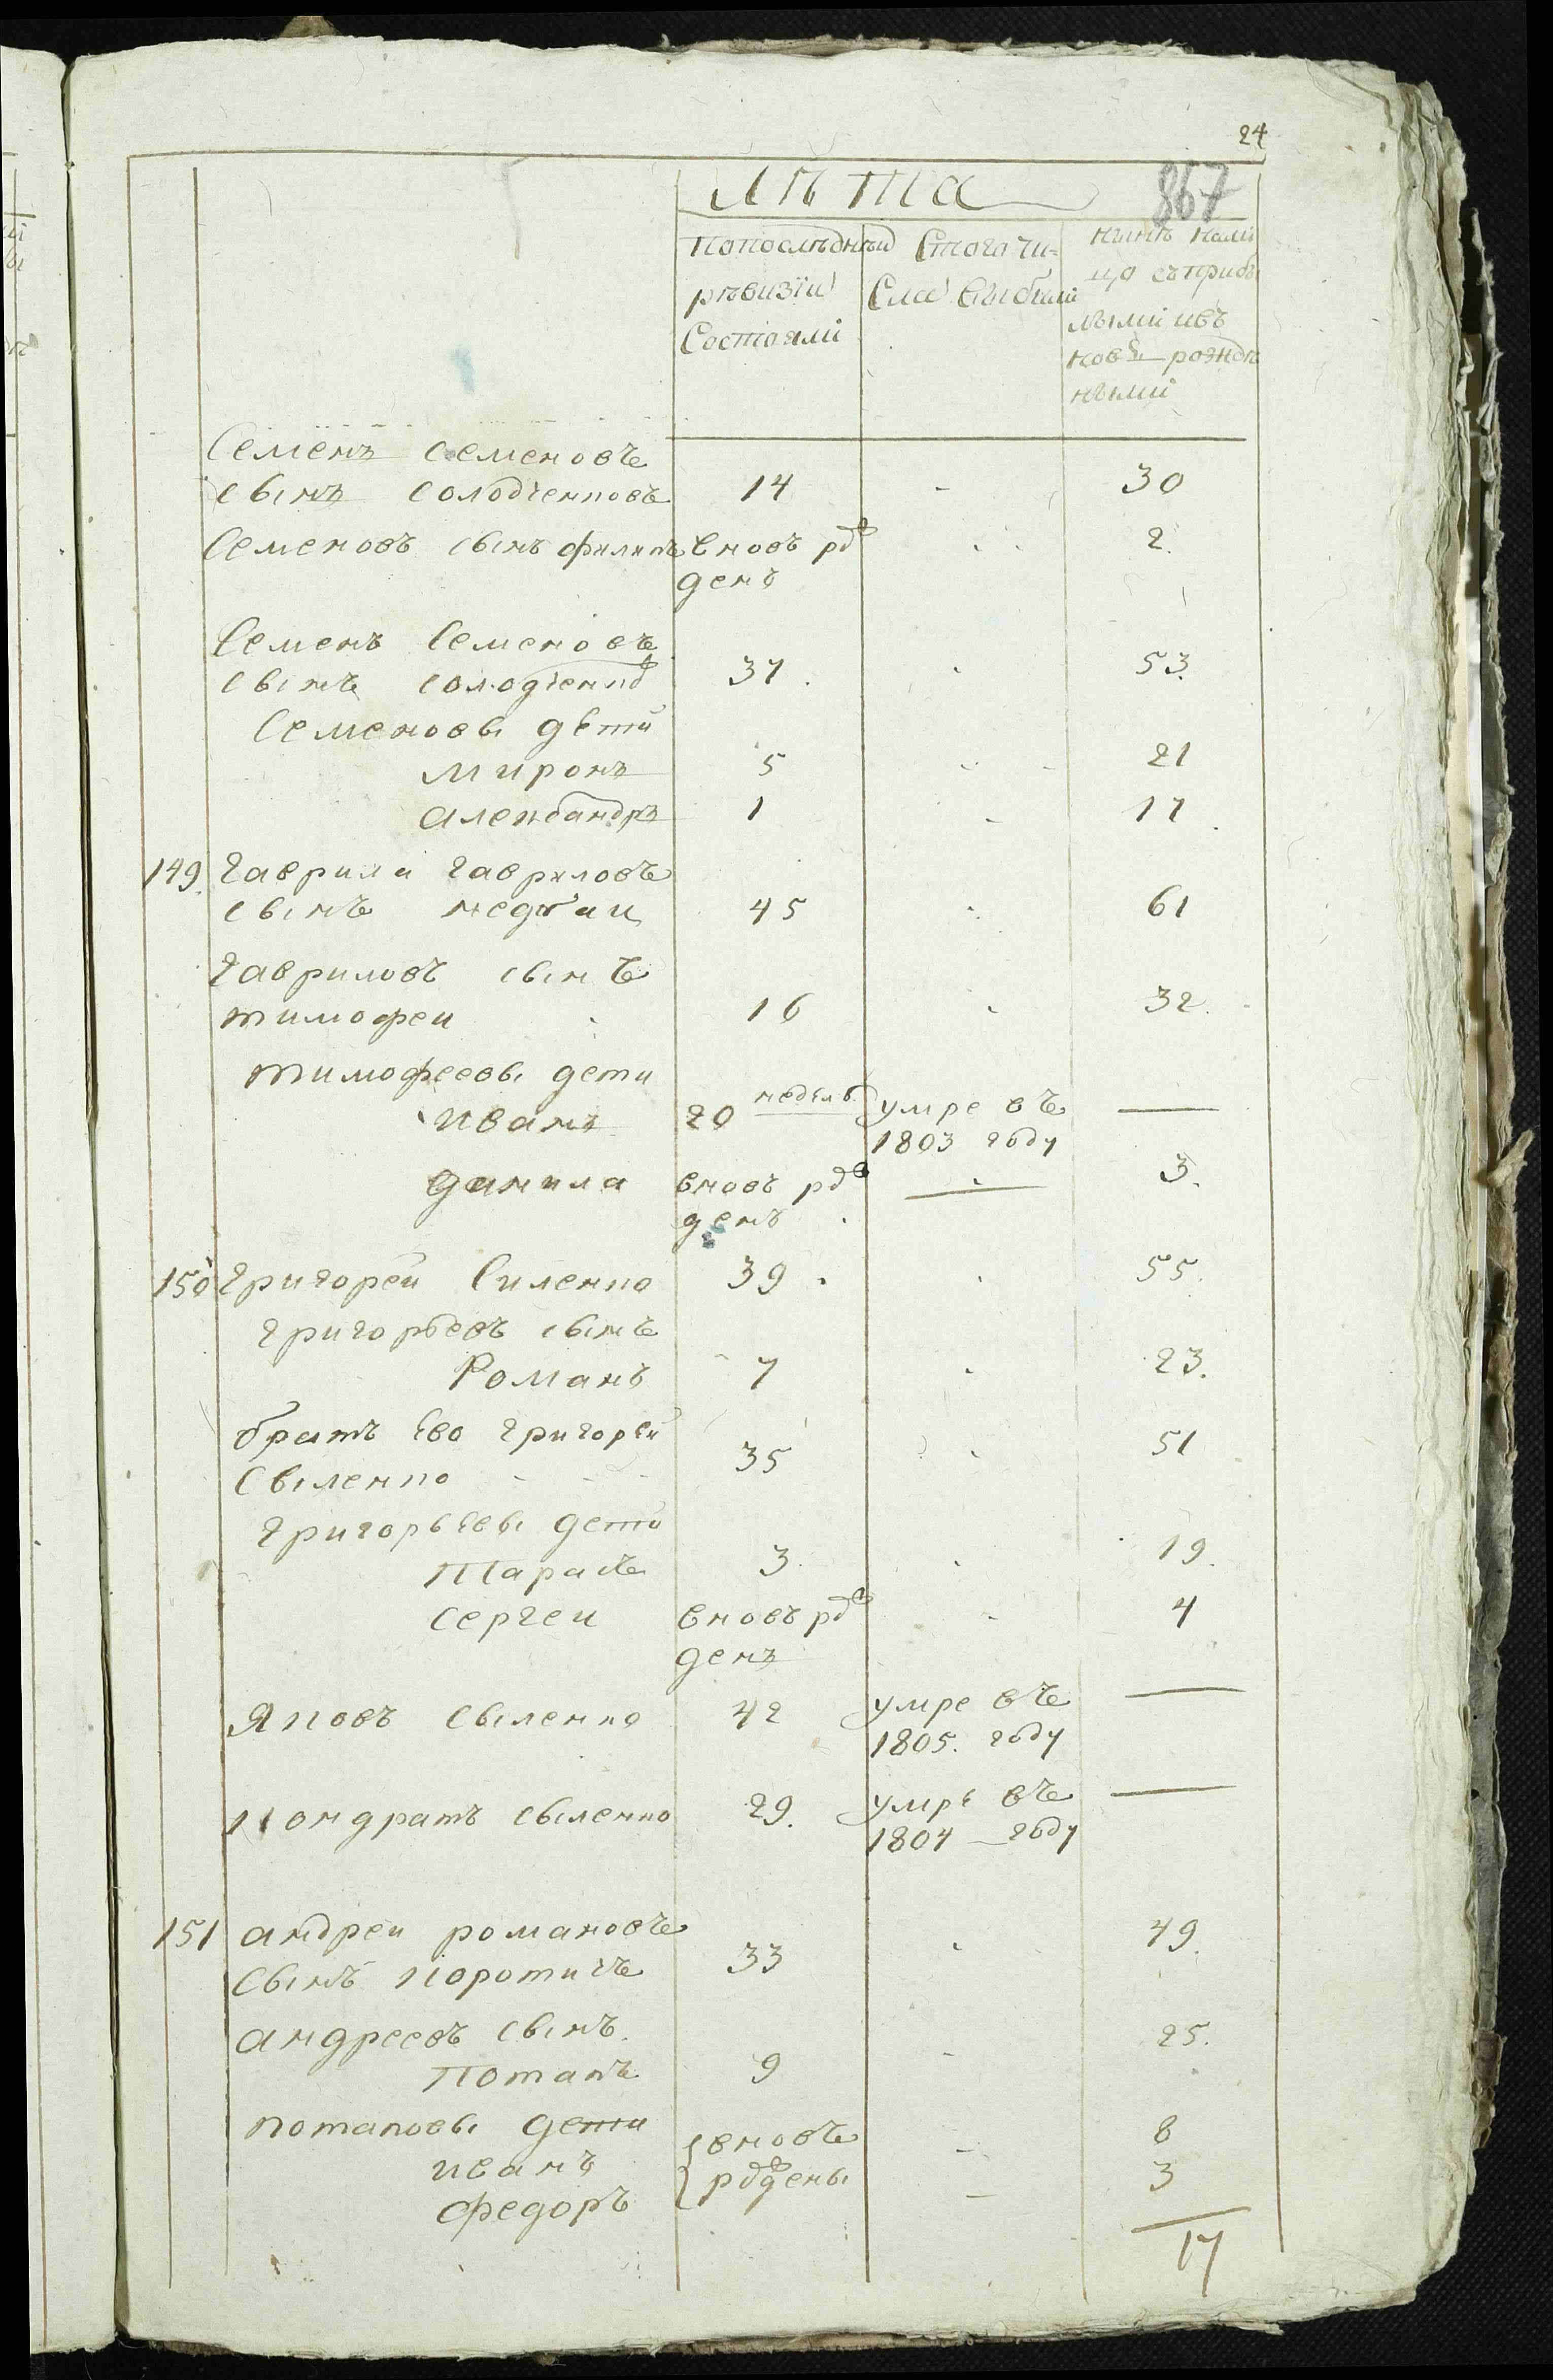 24
867
Лѣта
попоследнѣй ревизїи состояли
Стого числа выбыли
нынѣ налицо съприбылыми ивъновь рожденными
Семенъ Семеновъ
сынъ Солодченковъ 14 - 30
Семеновъ сынъ филипъ вновь рож
денъ 2.
Семенъ Семеновъ
сынъ Солодченков 37. 53.
Семеновы дѣти
миронъ 5 - 21
александръ 1 - 17.
149. Гаврила Гавриловъ
сынъ 45 61
Гавриловъ сынъ
тимофеи 16 32.
тимофеевы дети
Иванъ 20 недель умре въ —
1803 году
данила вновь рож — 3.
денъ
150 Григорей Силенко 39. 55.
григорьевъ сынъ
Романъ 7 23.
братъ Ево Григорей
Сыленко 35 51
григорьевы дети
Тарасъ 3. 19.
Сергеи вновь рож 4
денъ
Яковъ Сыленко 42 умре въ —
1805. году
Кондратъ Сыленко 29. умре въ —
1804 году
151 андреи романовъ
Сынъ Коротичъ 33 49.
андреевъ сынъ.
Потапъ 9 - 25.
потаповы дети
иванъ вновь - 8
федоръ рождены - 3
17